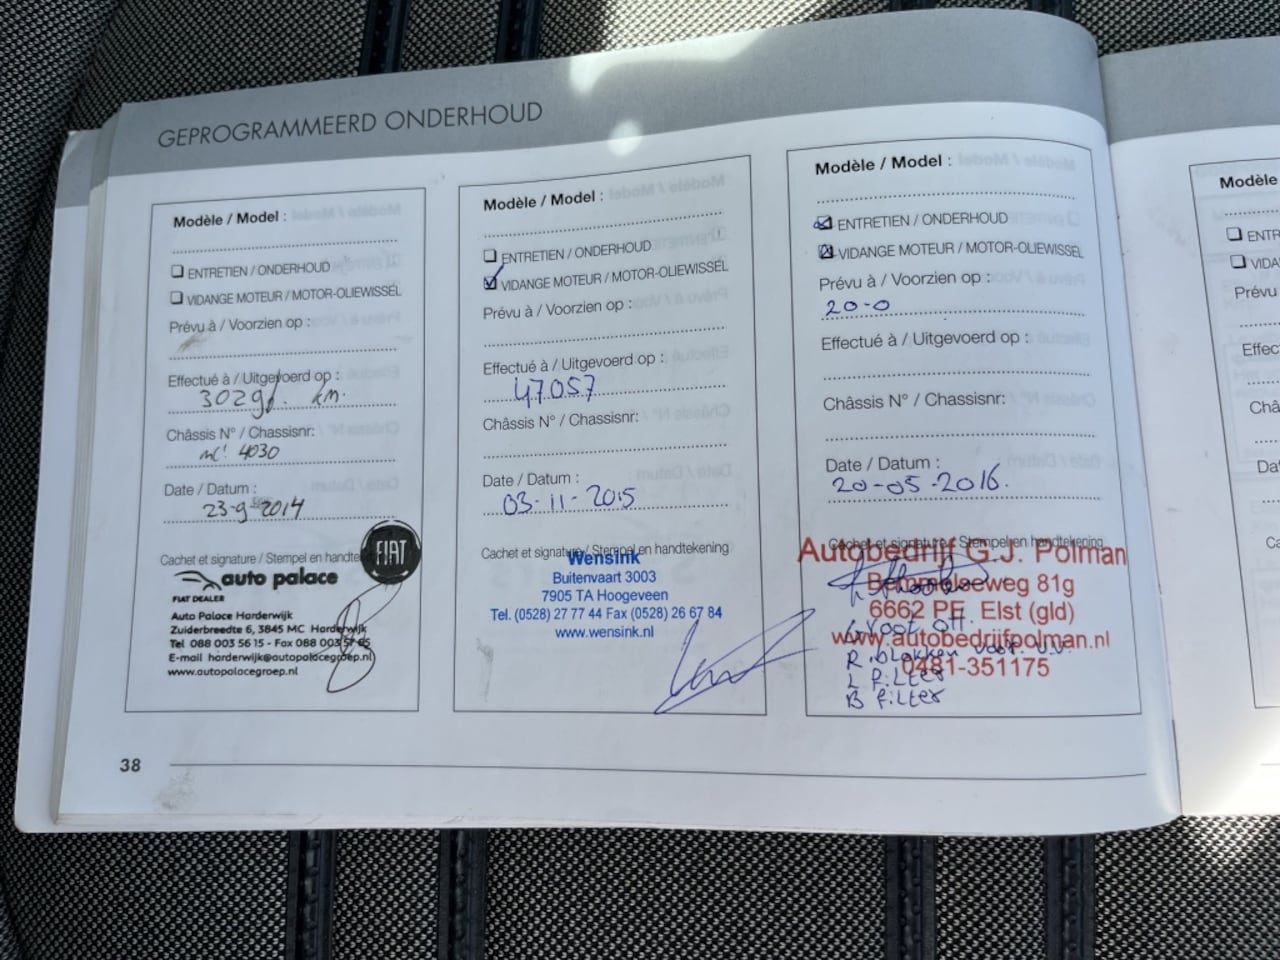 GEPROGRAMMEERD ONDERHOUD
Modèle / Model :
ENTRETIEN / ONDERHOUD
VIDANGE MOTEUR / MOTOR-OLIEWISSEL
Prévu à / Voorzien op :
Effectué à / Uitgevoerd op :
km.
Châssis N° / Chassisnr:
4030
Date / Datum :
23-9-2014
Cachet et signature / Stempel en handte
FIAT
auto palace
FIAT DEALER
Auto Palace Harderwijk
Zuiderbreedte 6, 3845 MC Harderwijk
Tel 088 003 56 15 - Fax 088 003
E-mail harderwijk@autopalacegroep.nl
www.autopalacegroep.nl
Modèle / Model :
ENTRETIEN / ONDERHOUD
VIDANGE MOTEUR / MOTOR-OLIEWISSEL
Prévu à / Voorzien op :
Effectué à / Uitgevoerd op :
47057
Châssis N° / Chassisnr:
Date / Datum :
03-11-2015
Cachet et signature / Stempel en handtekening
Wensink
Buitenvaart 3003
7905 TA Hoogeveen
Tel. (0528) 27 77 44 Fax (0528) 26 67 84
www.wensink.nl
Modèle / Model :
ENTRETIEN / ONDERHOUD
VIDANGE MOTEUR / MOTOR-OLIEWISSEL
Prévu à / Voorzien op :
20-0
Effectué à / Uitgevoerd op :
Châssis N° / Chassisnr:
Date / Datum :
20-05-2016.
Cachet et signature / Stempel en handtekening
Autobedrijf G.J. Polman
81g
6662 PE Elst (gld)
Groot
www.autobedrijfpolman.nl
R. blokken voor
0481-351175
L filter
B filter
38
Modèle
ENTR
VIDA
Prévu
Effec
Châ
Da
Ca